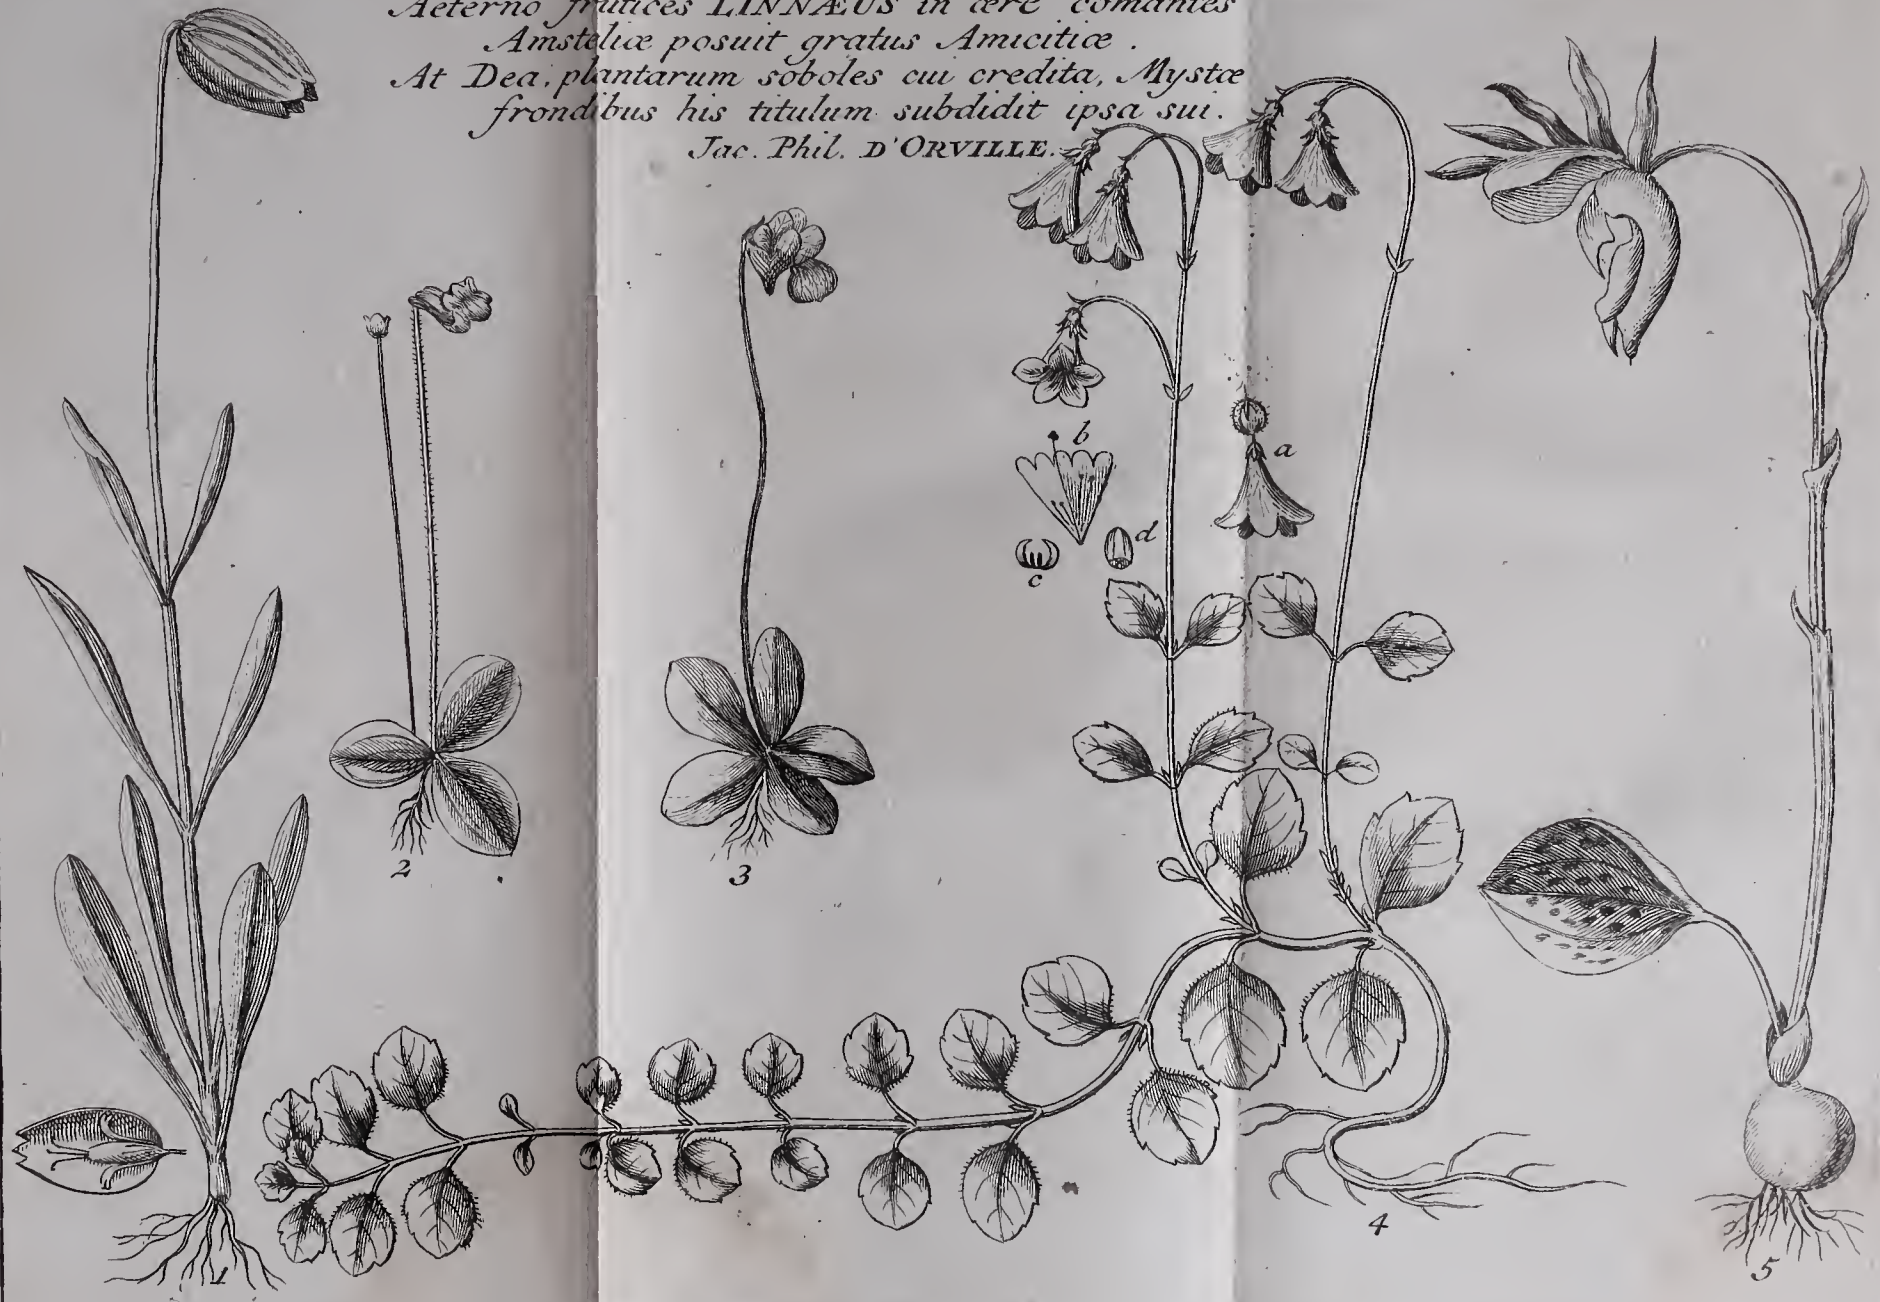 Aeterno frutices LINNÆUS in ære comantes
Amsteliæ posuit gratus Amicitiæ .
At Dea, plantarum soboles cui credita, Mystæ
frondibus his titulum subdidit ipsa sui.
Jac. Phil. D'ORVILLE.
b
a
d
c
2
3
4
1
5